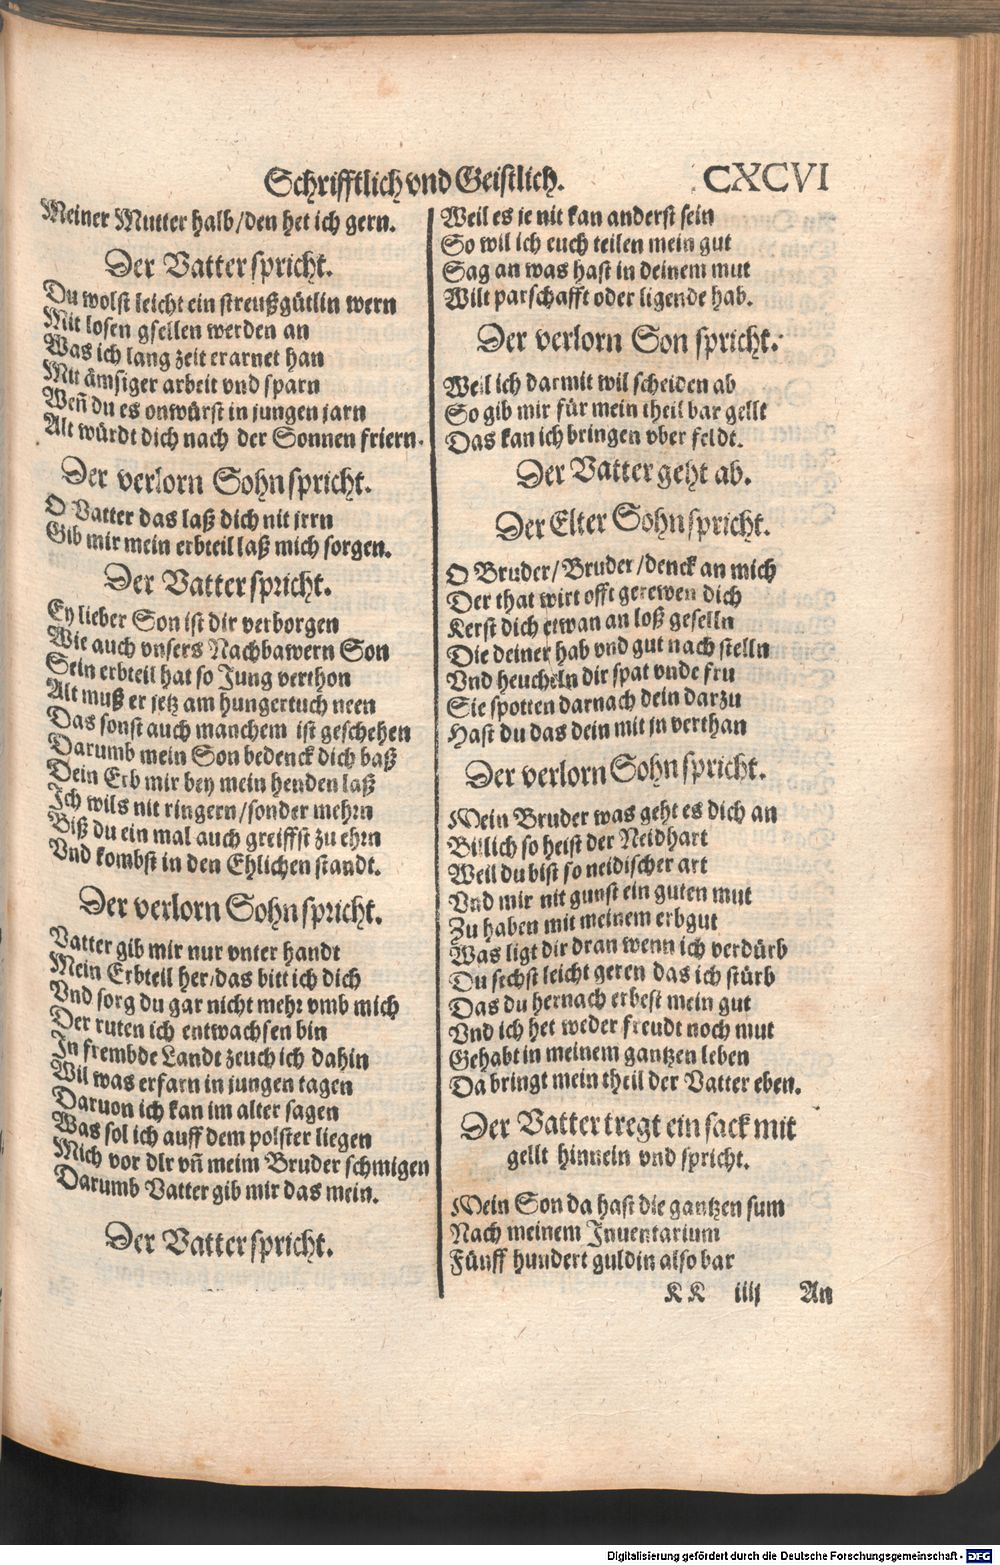 Schrifftlich vnd Geistlich. CXCVI
Meiner Mutter halb/den het ich gern.
Der Vatter spricht.
Du wolst leicht ein streußgütlin wern
Mit losen gsellen werden an
Was ich lang zeit erarnet han
Mit ämsiger arbeit vnd sparn
Weñ du es onwürst in jungen jarn
Alt würdt dich nach der Sonnen friern.
Der verlorn Sohn spricht.
O Vatter das laß dich nit jrrn
Gib mir mein erbteil laß mich sorgen.
Der Vatter spricht.
Ey lieber Son ist dir verborgen
Wie auch vnsers Nachbawern Son
Sein erbteil hat so Jung verthon
Alt muß er jetz am hungertuch neen
Das sonst auch manchem ist geschehen
Darumb mein Son bedenck dich baß
Dein Erb mir bey mein henden laß
Ich wils nit ringern/sonder mehrn
Biß du ein mal auch greiffst zu ehrn
Vnd kombst in den Ehlichen standt.
Der verlorn Sohn spricht.
Vatter gib mir nur vnter handt
Mein Erbteil her/das bitt ich dich
Vnd sorg du gar nicht mehr vmb mich
Der ruten ich entwachsen bin
In frembde Landt zeuch ich dahin
Wil was erfarn in jungen tagen
Daruon ich kan im alter sagen
Was sol ich auff dem polster liegen
Mich vor dir vñ meim Bruder schmigen
Darumb Vatter gib mir das mein.
Der Vatter spricht.
Weil es je nit kan anderst sein
So wil ich euch teilen mein gut
Sag an was hast in deinem mut
Wilt parschafft oder ligende hab.
Der verlorn Son spricht.
Weil ich darmit wil scheiden ab
So gib mir für mein theil bar gellt
Das kan ich bringen vber feldt.
Der Vatter geht ab.
Der Elter Sohn spricht.
O Bruder/Bruder/denck an mich
Der that wirt offt gerewen dich
Kerst dich etwan an loß geselln
Die deiner hab vnd gut nach stelln
Vnd heucheln dir spat vnde fru
Sie spotten darnach dein darzu
Hast du das dein mit jn verthan
Der verlorn Sohn spricht.
Mein Bruder was geht es dich an
Billich so heist der Neidhart
Weil du bist so neidischer art
Vnd mir nit gunst ein guten mut
Zu haben mit meinem erbgut
Was ligt dir dran wenn ich verdürb
Du sechst leicht geren das ich stürb
Das du hernach erbest mein gut
Vnd ich het weder freudt noch mut
Gehabt in meinem gantzen leben
Da bringt mein theil der Vatter eben.
Der Vatter tregt ein sack mit
gellt hinnein vnd spricht.
Mein Son da hast die gantzen sum
Nach meinem Inuentarium
Fünff hundert guldin also bar
KK iiij An
Digitalisierung gefördert durch die Deutsche Forschungsgemeinschaft - DFG